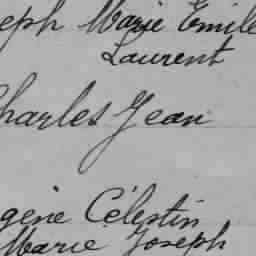 eph Marie Emile
Laurent
Charles Jean
gène Célestin
Marie Joseph